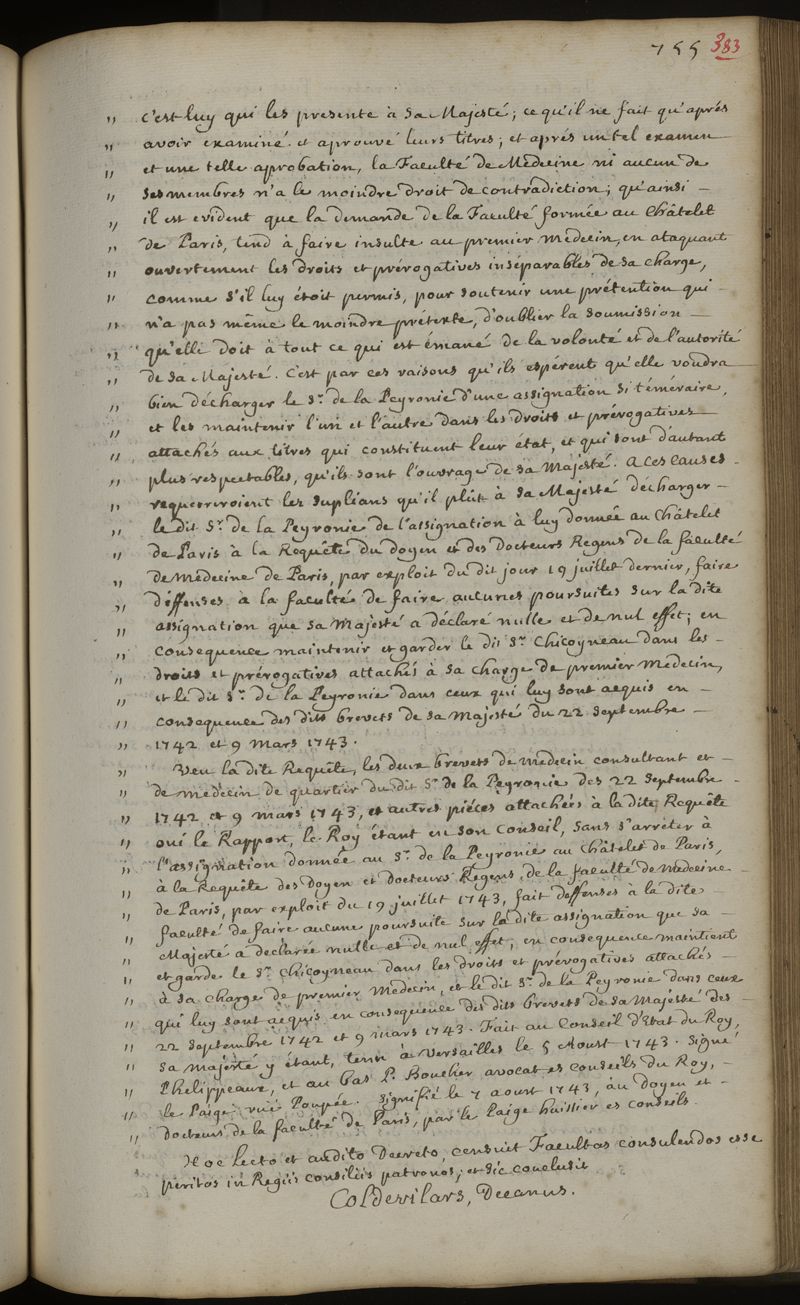 755 383
" c'est luy qui les presente à Sa Majesté; ce qu'il ne fait qu'aprés
" avoir examiné et aprouvé leurs titres; et aprés un tel examen
" et une telle aprobation, la Faculté de Medecine ni aucun de
" Ses membres n'a le moindre droit de contradiction; qu'ainsi –
" il est evident que la demande de la Faculté formée au Châtelet
" de Paris, tend à faire insulte au premier Medecin, en ataquant
" ouvertement les droits et prérogatives inséparables de sa charge,
" comme s'il luy étoit permis, pour soutenir une prétention qui –
" n'a pas même le moindre prétexte, d'oublier la soumission –
" qu'elle doit à tout ce qui est émané de la volonté et de l'autorité
" de Sa Majesté. C'est par ces raisons qu'ils espérent qu'elle voudra
" bien décharger le Sr. de la Peyronie d'une assignation si téméraire,
" et les maintenir l'un et l'autre dans les droits et prérogatives
" attachés aux titres qui constituent leur état, et qui sont d'autant
" plus respectables, qu'ils sont l'ouvrage de Sa Majesté. A ces causes –
" requerroient les suplians qu'il plût à Sa Majesté décharger –
" le dit Sr. de la Peyronie de l'assignation à luy donnée au Châtelet
" de Paris à la Requête du doyen et des Docteurs Regens de la faculté
" de Medecine de Paris, par exploit du dit jour 19 juillet dernier, faire
" déffenses à la faculté de faire aucunes poursuites sur la dite
" assignation que sa Majesté a déclaré nulle et de nul effet; en
" consequence maintenir et garder le dit Sr. Chicoyneau dans les –
" droits et prérogatives attachés à Sa charge de premier Medecin,
" et le dit Sr. de la Peyronie dans ceux qui luy sont acquis en –
" consequence des dits brevets de Sa Majesté du 22 Septembre –
" 1742 et 9 Mars 1743.
" Veu la dite Requête, les deux brevets de medecin consultant et –
" de medecin de quartier du dit Sr. de la Peyronie des 22 Septembre –
" 1742 et 9 mars 1743, et autres piéces attachées à la dite Requête
" oui le Rapport, le Roy étant en son Conseil, sans s'arrêter à
" l'assignation donnée au Sr. de la Peyronie au Châtelet de Paris,
" à la Requête des Doyen et Docteurs Regens de la faculté de Medecine
" de Paris, par exploit du 19 juillet 1743, fait deffenses à la dite –
" faculté de faire aucune poursuite sur la dite assignation que sa –
" Majesté a déclarée nulle et de nul effet; en consequence maintient
" et garde le Sr. Chicoyneau dans les droits et prérogatives attachés –
" à sa charge de premier Medecin, et le dit Sr. de la Peyronie dans ceux
" qui luy sont acquis en consequence des dits brevets de sa Majesté des –
" 22 septembre 1742 et 9 mars 1743. Fait au Conseil d'Etat du Roy,
" Sa majesté y étant, tenu à Versailles le 5 Aoust 1743. Signé
" Phelippeaux, et au bas P. Boucher avocat es conseils du Roy, –
" le Paige, ruë Poupée. Signifié le 7 aoust 1743, au Doyen et –
" Docteurs de la faculté de Paris, par le Paige huissier es conseils.
Hoc lecto et audito Decreto, censuit Facultas consulendos esse
peritos in Regiis consiliis patronos; et sic conclusit
Col de vilars, Decanus.